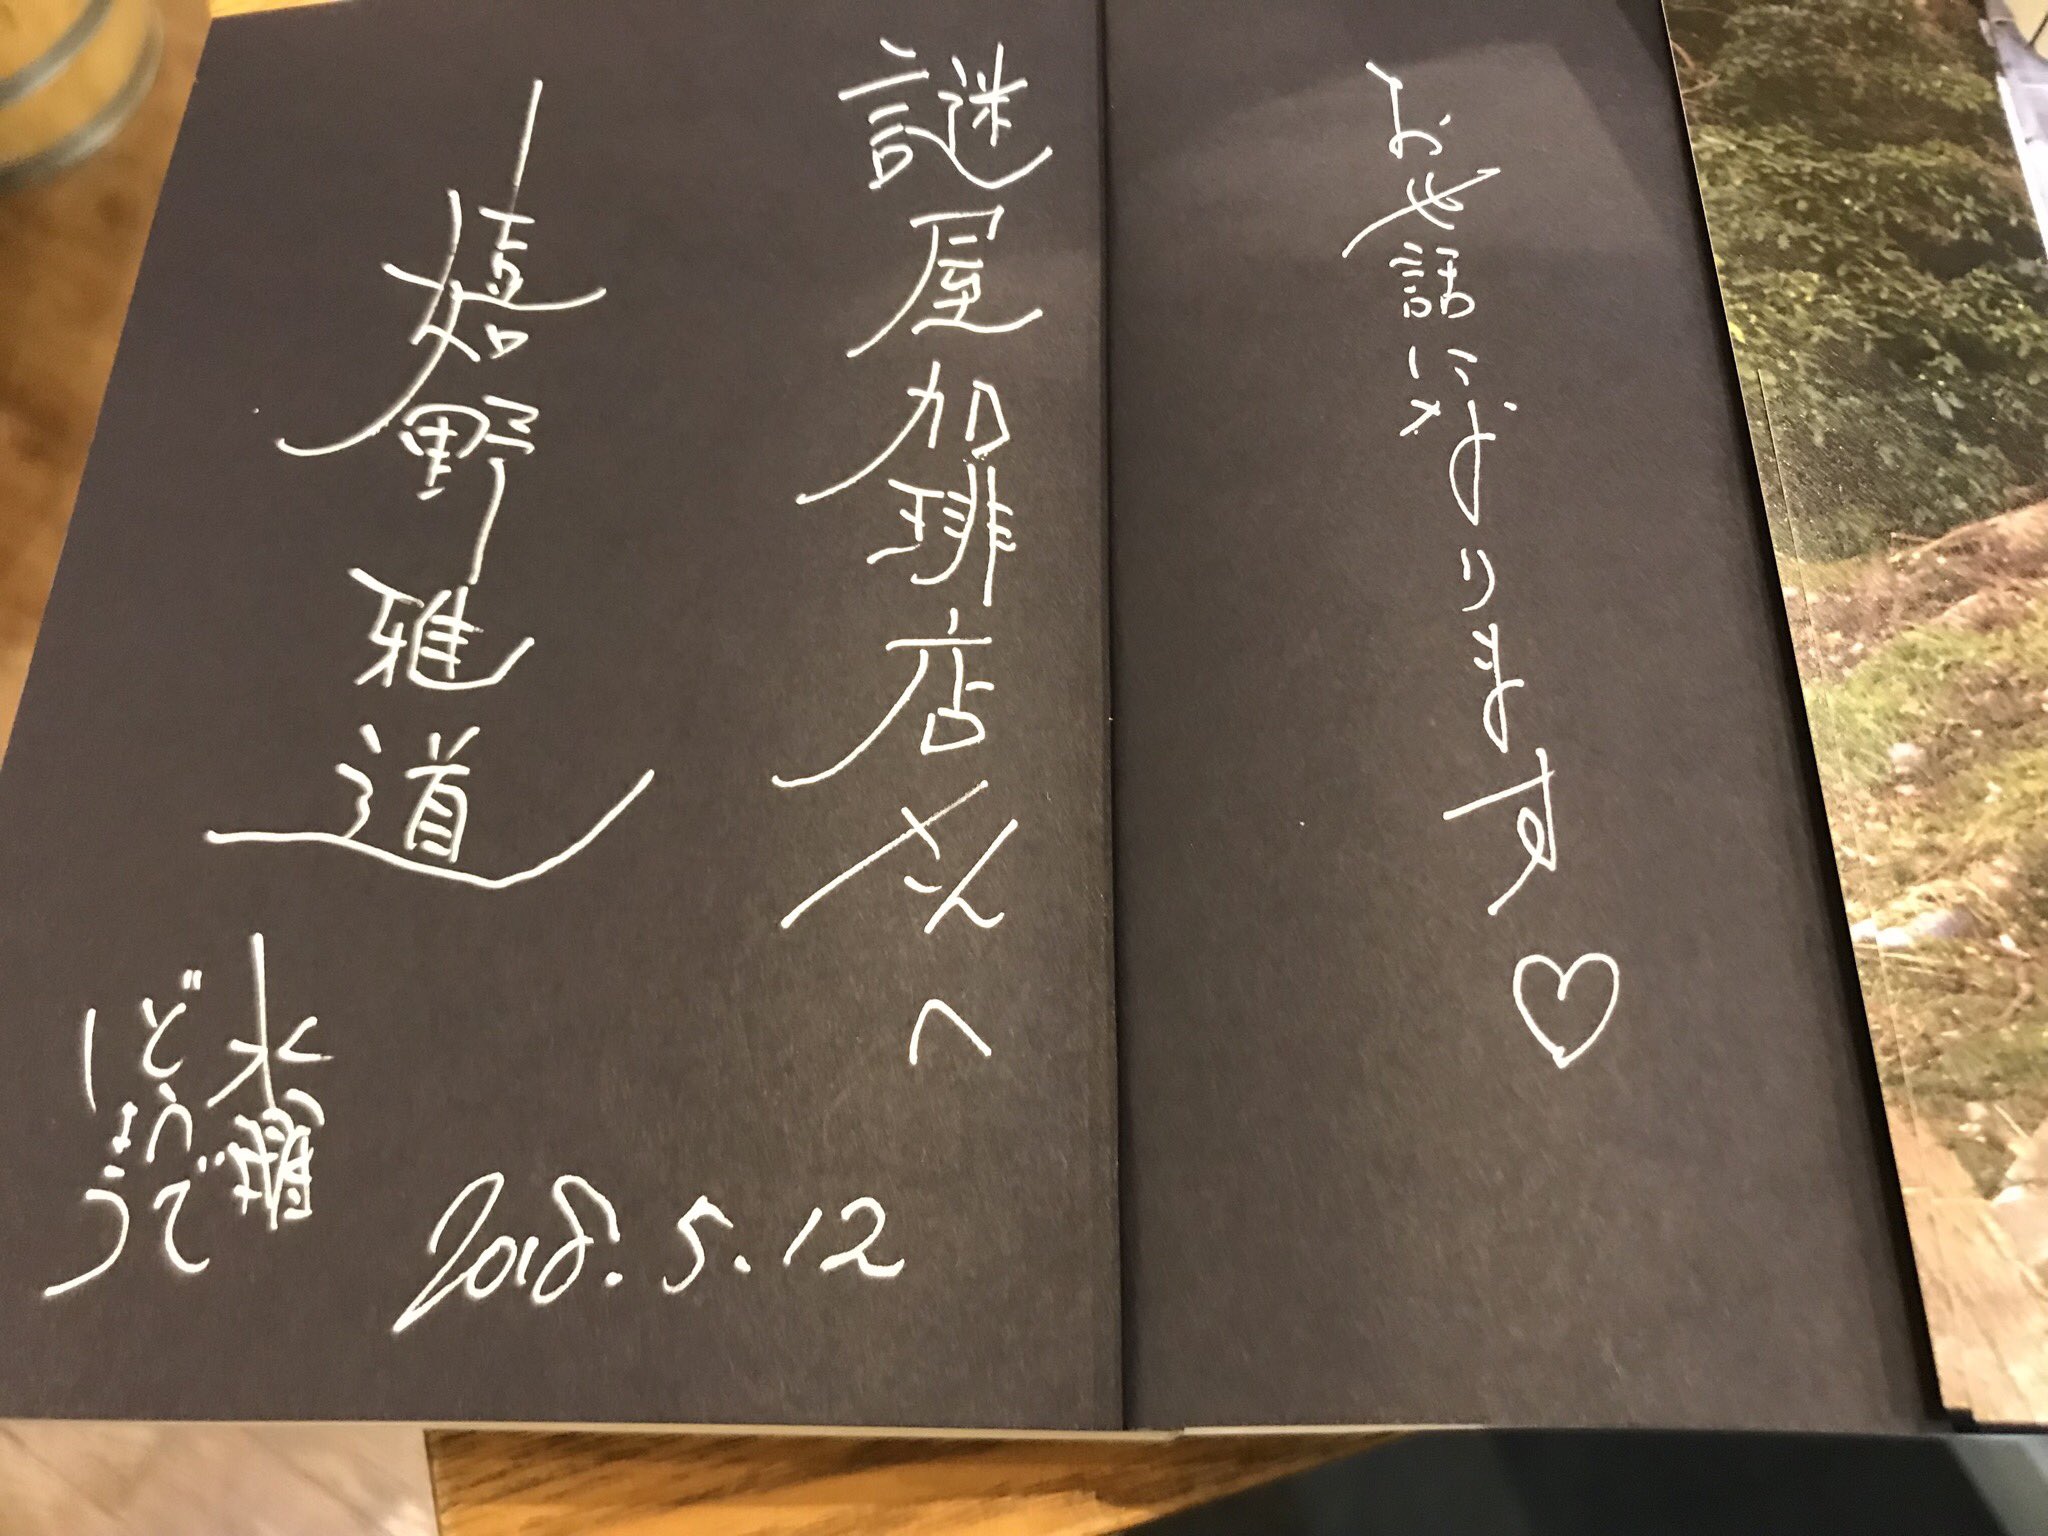 お世話になります♡
謎屋加琲店さんへ
嬉野雅道
水曜
どうで
しょう
2018.5.12